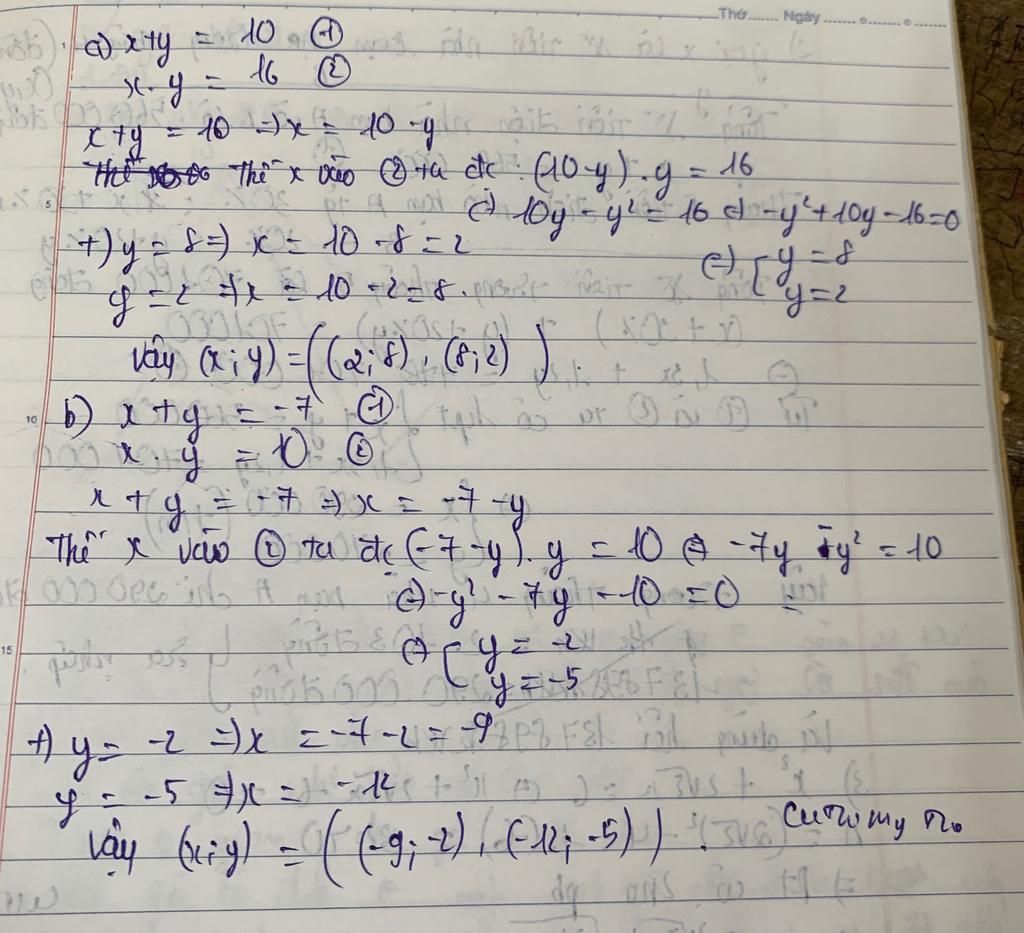 Thứ....... Ngày ........................
a) x+y = 10 ①
x.y = 16 ②
x+y = 10 => x = 10-y
Thế x vào ② ta đc : (10-y).y = 16
<=> 10y-y² = 16 <=> -y²+10y-16=0
+) y = 8 => x = 10-8 = 2
<=> [ y = 8
y = 2 => x = 10-2 = 8.
y = 2
Vậy (x;y) = ((2;8), (8;2)).
b) x+y = -7 ①
x.y = 10 ②
x+y = -7 => x = -7-y
Thế x vào ② ta đc (-7-y).y = 10 <=> -7y -y² = 10
<=> -y² - 7y - 10 = 0
<=> [ y = -2
y = -5
+) y = -2 => x = -7-2 = -9
y = -5 => x = -12
Vậy (x;y) = ((-9;-2), (-12;-5)).
5
10
15